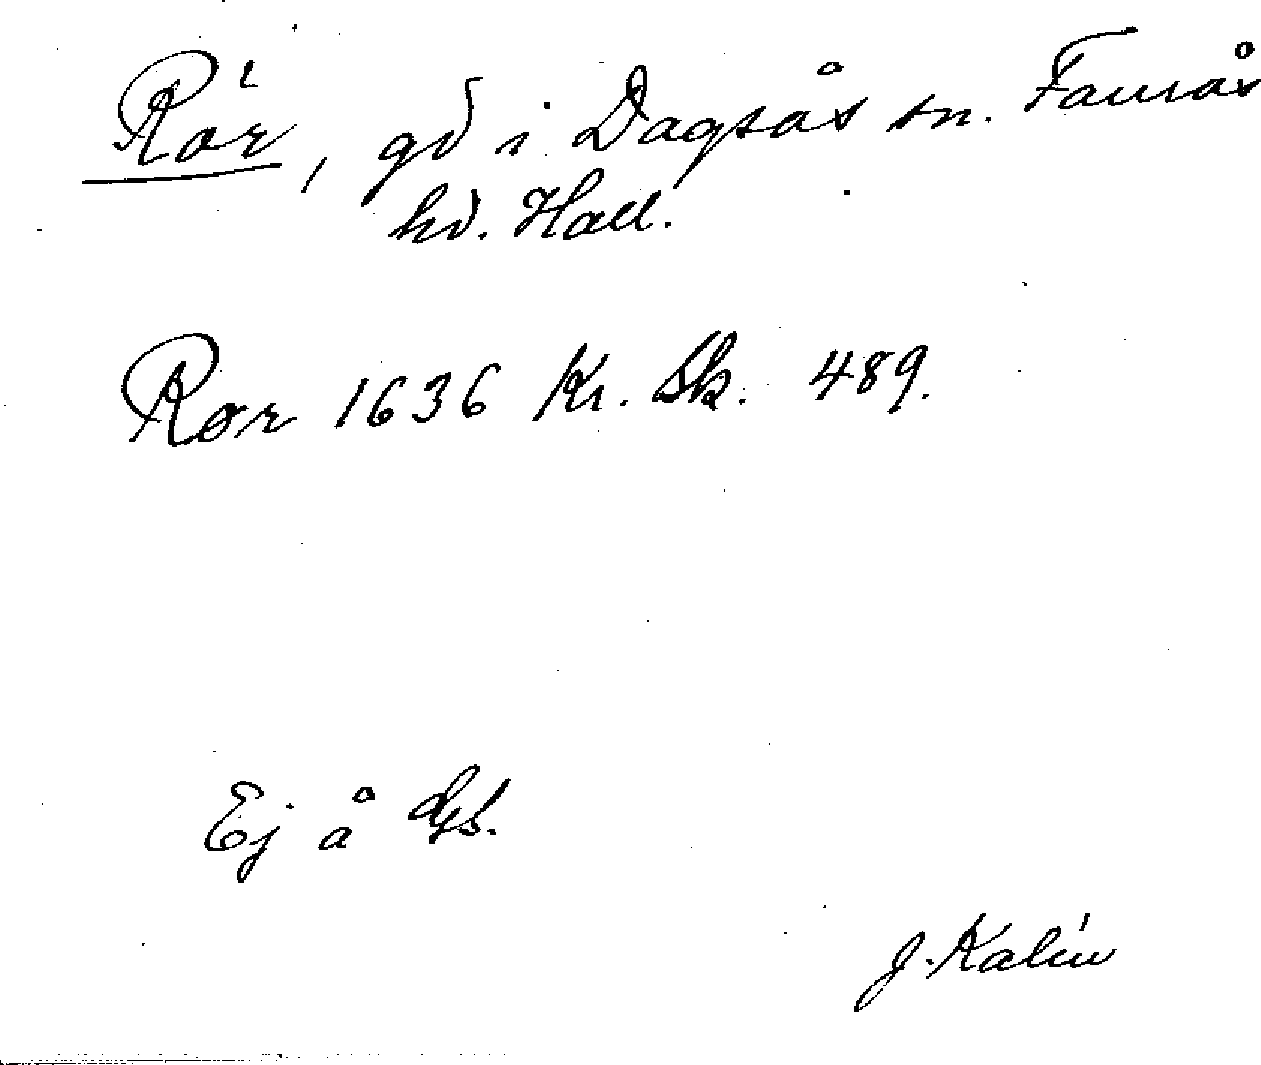 Rör, gd i Dagsås sn. Faurås
hd. Hall.
Rör 1636 Kr. Sk. 489.
Ej å Gs.
J. Kalén